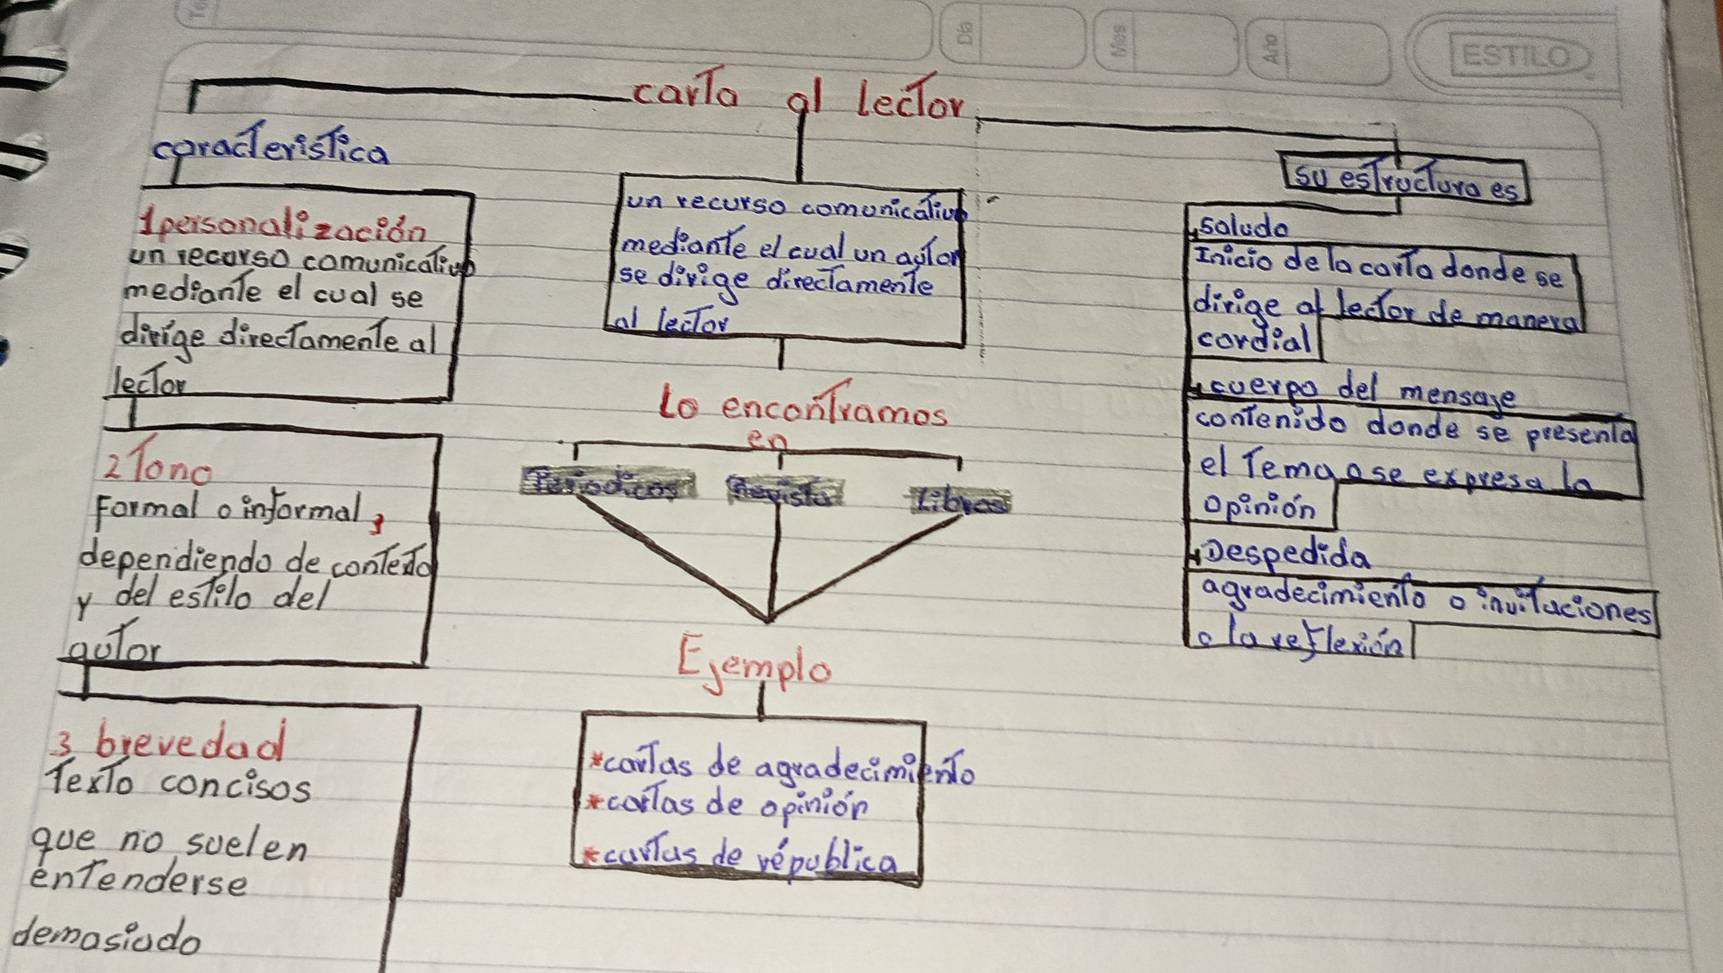 Día
Mes
Año
ESTILO
carta al lector
caracteristica
1 personalización
un recurso comunicativo
mediante el cual se
dirige directamente al
lector
2 Tono
Formal o informal,
dependiendo de contexto
y del estilo del
autor
3 brevedad
Texto concisos
que no suelen
entenderse
demasiado
un recurso comonicativo
mediante el cual un autor
se dirige directamente
al lector
Lo encontramos
en
Periodicos Revista Libros
Ejemplo
*cartas de agradecimiento
*cartas de opinión
*cartas de république
su estructura es
saludo
Inicio de la carta donde se
dirige al lector de manera
cordial
cuerpo del mensaje
contenido donde se presenta
el Tema o se expresa la
opinión
Despedida
agradecimiento o invitaciones
a la reflexión